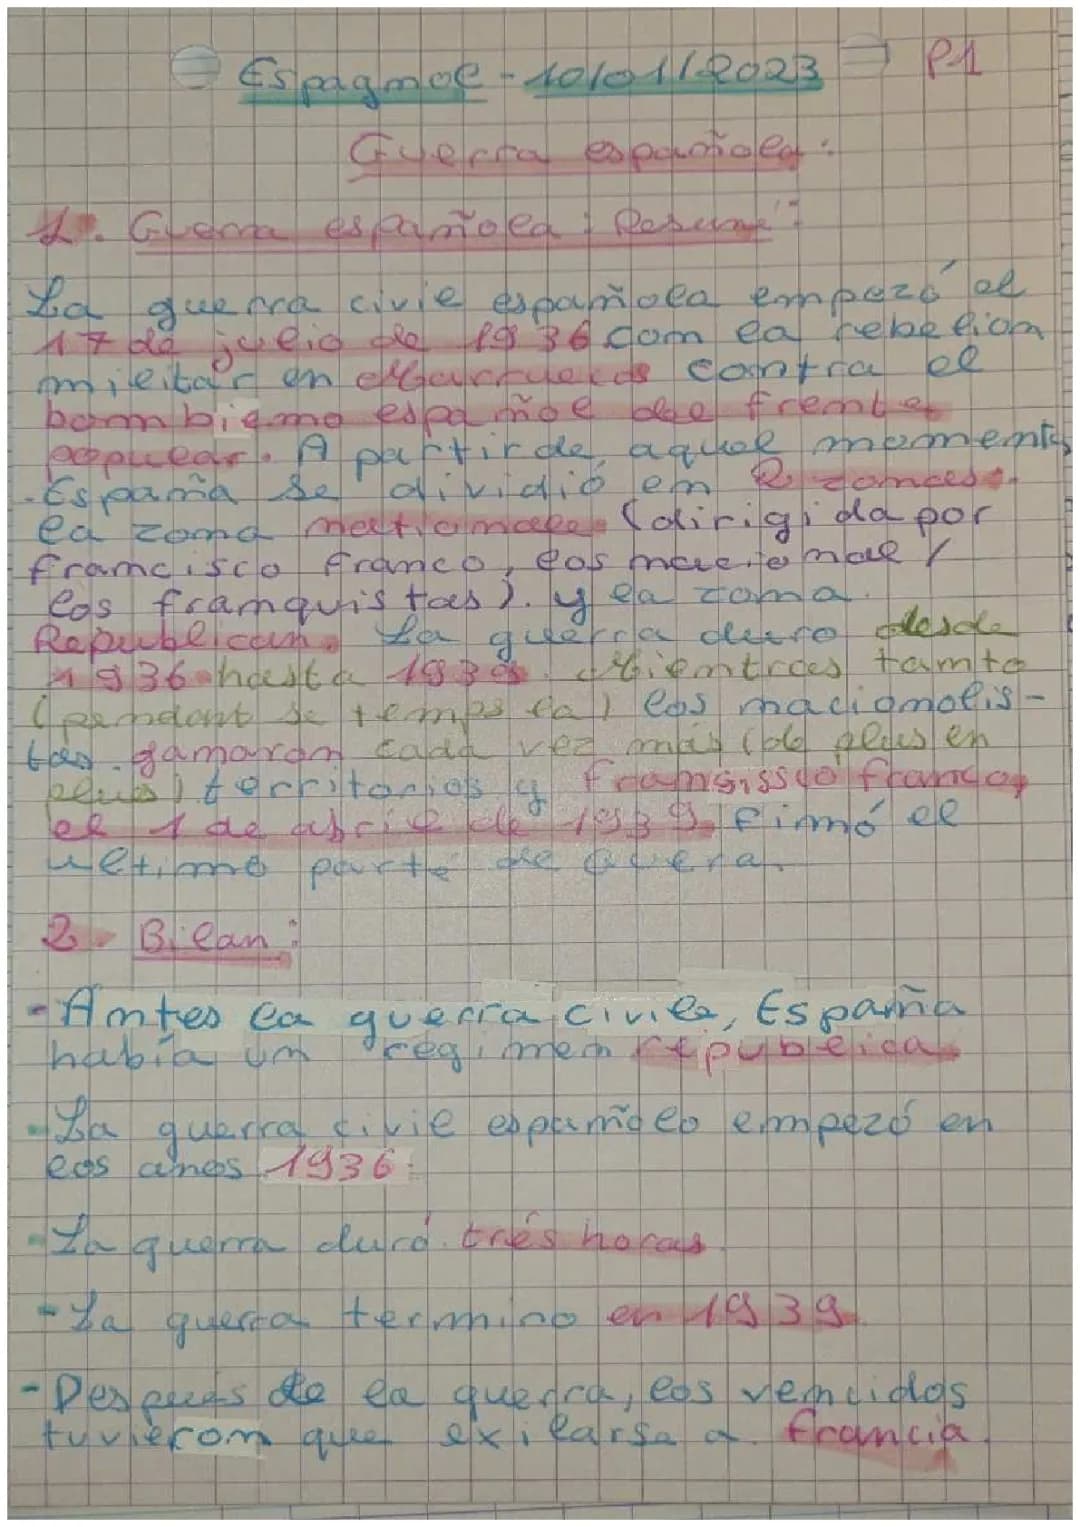 Espagnol - 10/01/2023 P1
Guerra española :
1. Guerra española : Resumé :
La guerra civil española empezó el
17 de julio de 1936 com la rebelion
militar en Marruecos contra el
bombierno español del frente
popular. A partir de aquel momento
España se dividió em 2 zonas :
la zona nationale (dirigida por
francisco franco, los nacional /
los franquistas). y la zona
Republican. La guerra duro desde
1936 hasta 1939. Mientras tamto
(pendant se temps la) los nacionolis-
tas gamaron cada vez más (de plus en
plus) territorios y fransissco franco,
el 1 de abril de 1939 firmó el
ultimo parte de guera.
2. Bilan :
- Antes la guerra civile, España
había um régimen républica.
- La guerra civil españolo empezó en
los anos 1936.
- La guerra duró trés horas.
- La guerra termino en 1939.
- Despues de la guerra, los vencidos
tuvierom que exilarsa a francia.